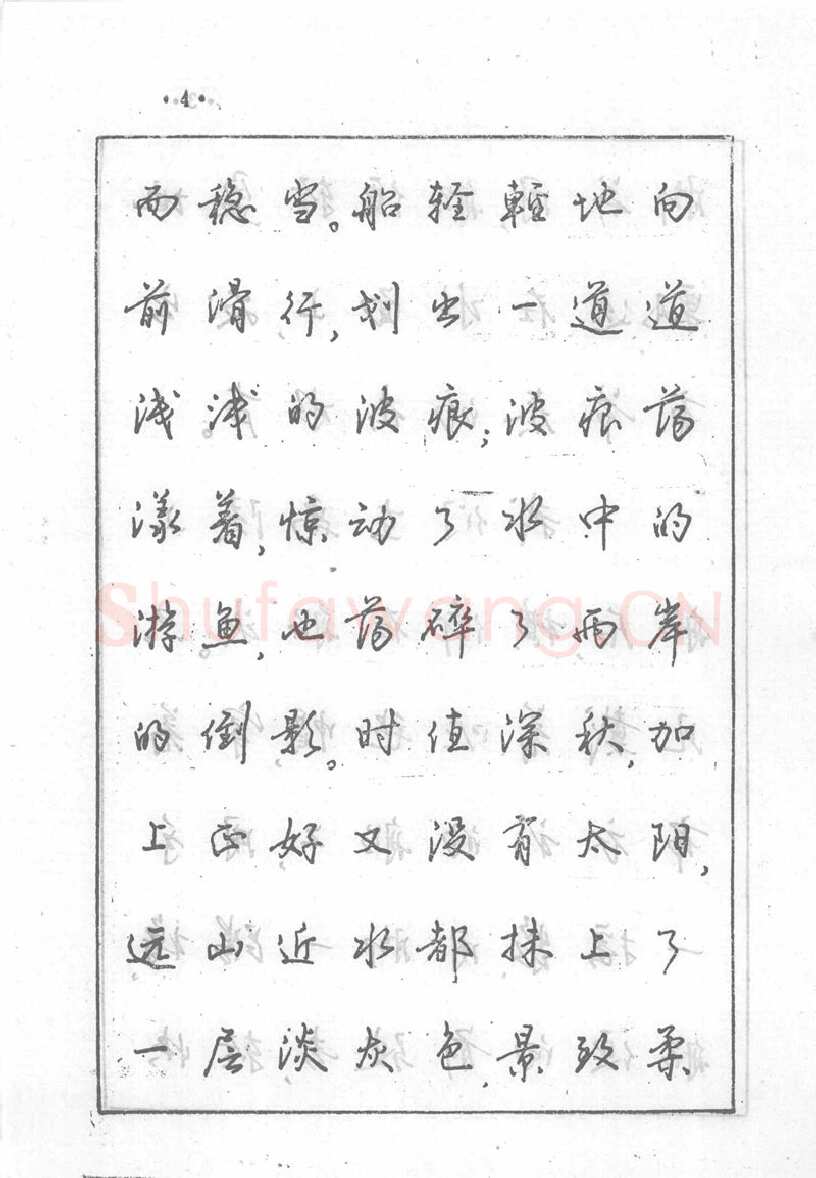 ·4·
而稳当。船轻輕地向
前滑行,划出一道道
浅浅的波痕;波痕荡
漾着,惊动了水中的
游鱼,也荡碎了两岸
Shufawang.CN
的倒影。时值深秋,加
上正好又没有太阳,
远山近水都抹上了
一层淡灰色,景致柔